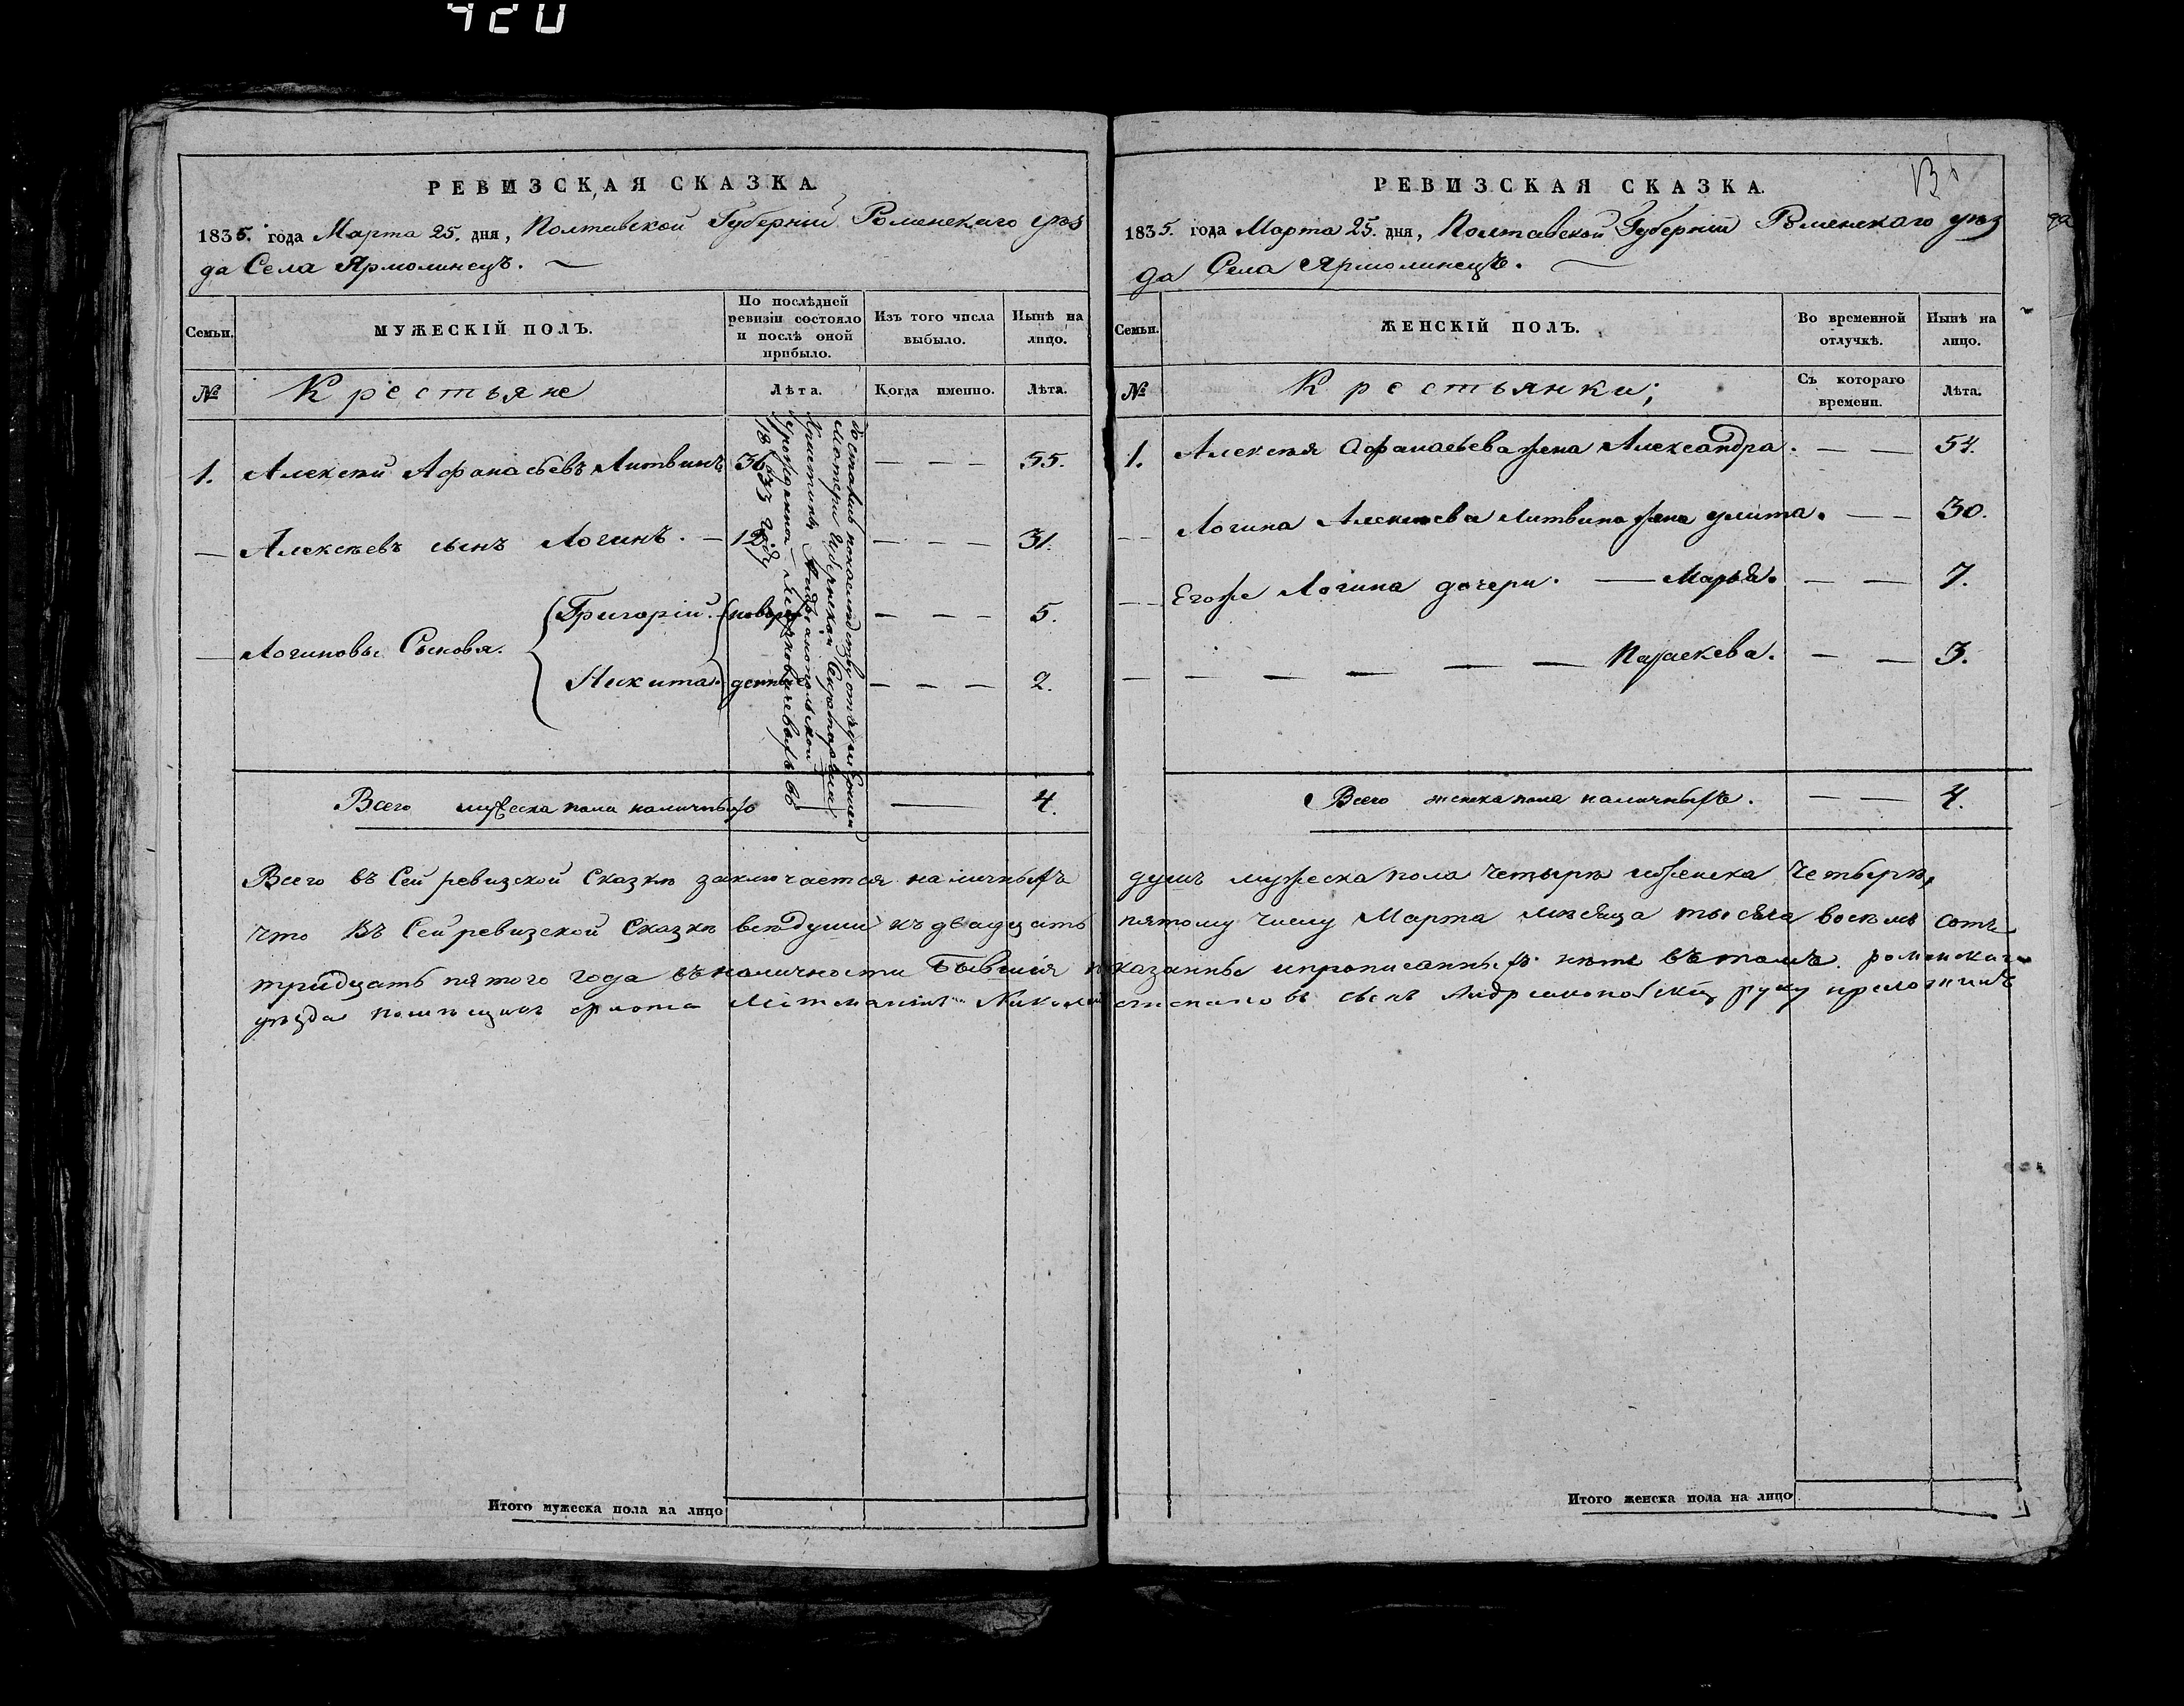 420
РЕВИЗСКАЯ СКАЗКА.
1835. года Марта 25. дня, Полтавской Губернии Роменскаго уѣз
да Села Ярмолинецъ.
Семьи.
МУЖЕСКІЙ ПОЛЪ.
По послѣдней ревизіи состояло и послѣ оной прибыло.
Изъ того числа выбыло.
Нынѣ на лицо.
№
Крестьяне
Лѣта.
Когда именно.
Лѣта.
1. Алексѣй Афанасьевъ Литвинъ 36 — — — 55.
— Алексѣевъ сынъ Логинъ. — 12 — — — 31.
— Логиновы Сыновья. Григорій. новоро — — — 5.
Никита. — — — 2.
Губернской Секретарши
Христины Андріанопольской
урожденной
1833 году
Всего мужеска пола наличныхъ — 4.
Всего въ Сей ревизской Сказкѣ заключается наличныхъ
что въ Сей ревизской Сказкѣ всѣ души къ двадцать
тридцать пятого года въ наличности бывшія
уѣзда помѣщикъ флота
Итого мужеска пола на лицо
РЕВИЗСКАЯ СКАЗКА.
1835. года Марта 25. дня, Полтавской Губернии Роменскаго уѣз
да Села Ярмолинецъ.
Семьи.
ЖЕНСКІЙ ПОЛЪ.
Во временной отлучкѣ.
Нынѣ на лицо.
№
Крестьянки;
Съ котораго времени.
Лѣта.
1. Алексѣя Афанасьева жена Александра. — — 54.
— Логина Алексѣева Литвина жена улита. — — 30.
— Егоже Логина дочери. — Марья. — — 7.
— — — — — — Параскева. — — 3.
Всего женска пола наличныхъ. — — 4.
душъ мужеска пола четыре и женска четыре,
пятому числу Марта мѣсяца тысяча восемь сотъ
роменскаго
сынъ руку приложилъ
Итого женска пола на лицо